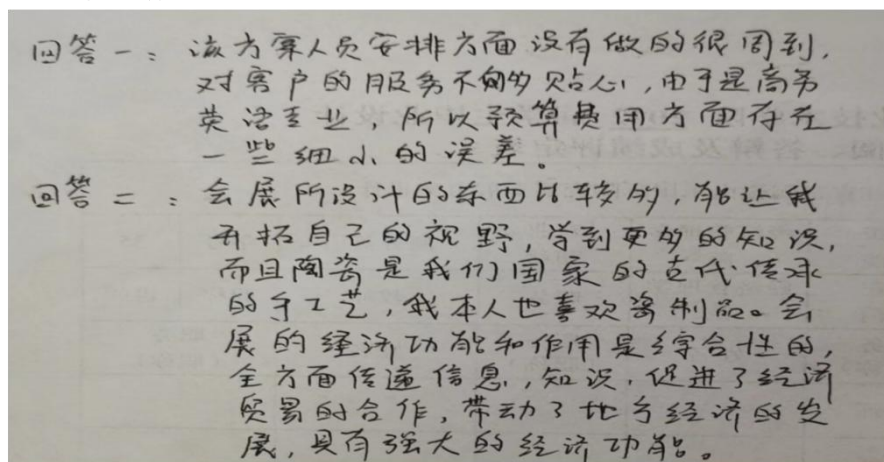 回答一：该方案人员安排方面没有做的很周到，
对客户的服务不够贴心，由于是商务
英语专业，所以预算费用方面存在
一些细小的误差。
回答二：会展所设计的东西比较多，能让我
开拓自己的视野，学到更多的知识，
而且陶瓷是我们国家的古代传承
的手工艺，我本人也喜欢瓷制品。会
展的经济功能和作用是综合性的，
全方面传递信息，知识，促进了经济
贸易的合作，带动了地方经济的发
展，具有强大的经济功能。